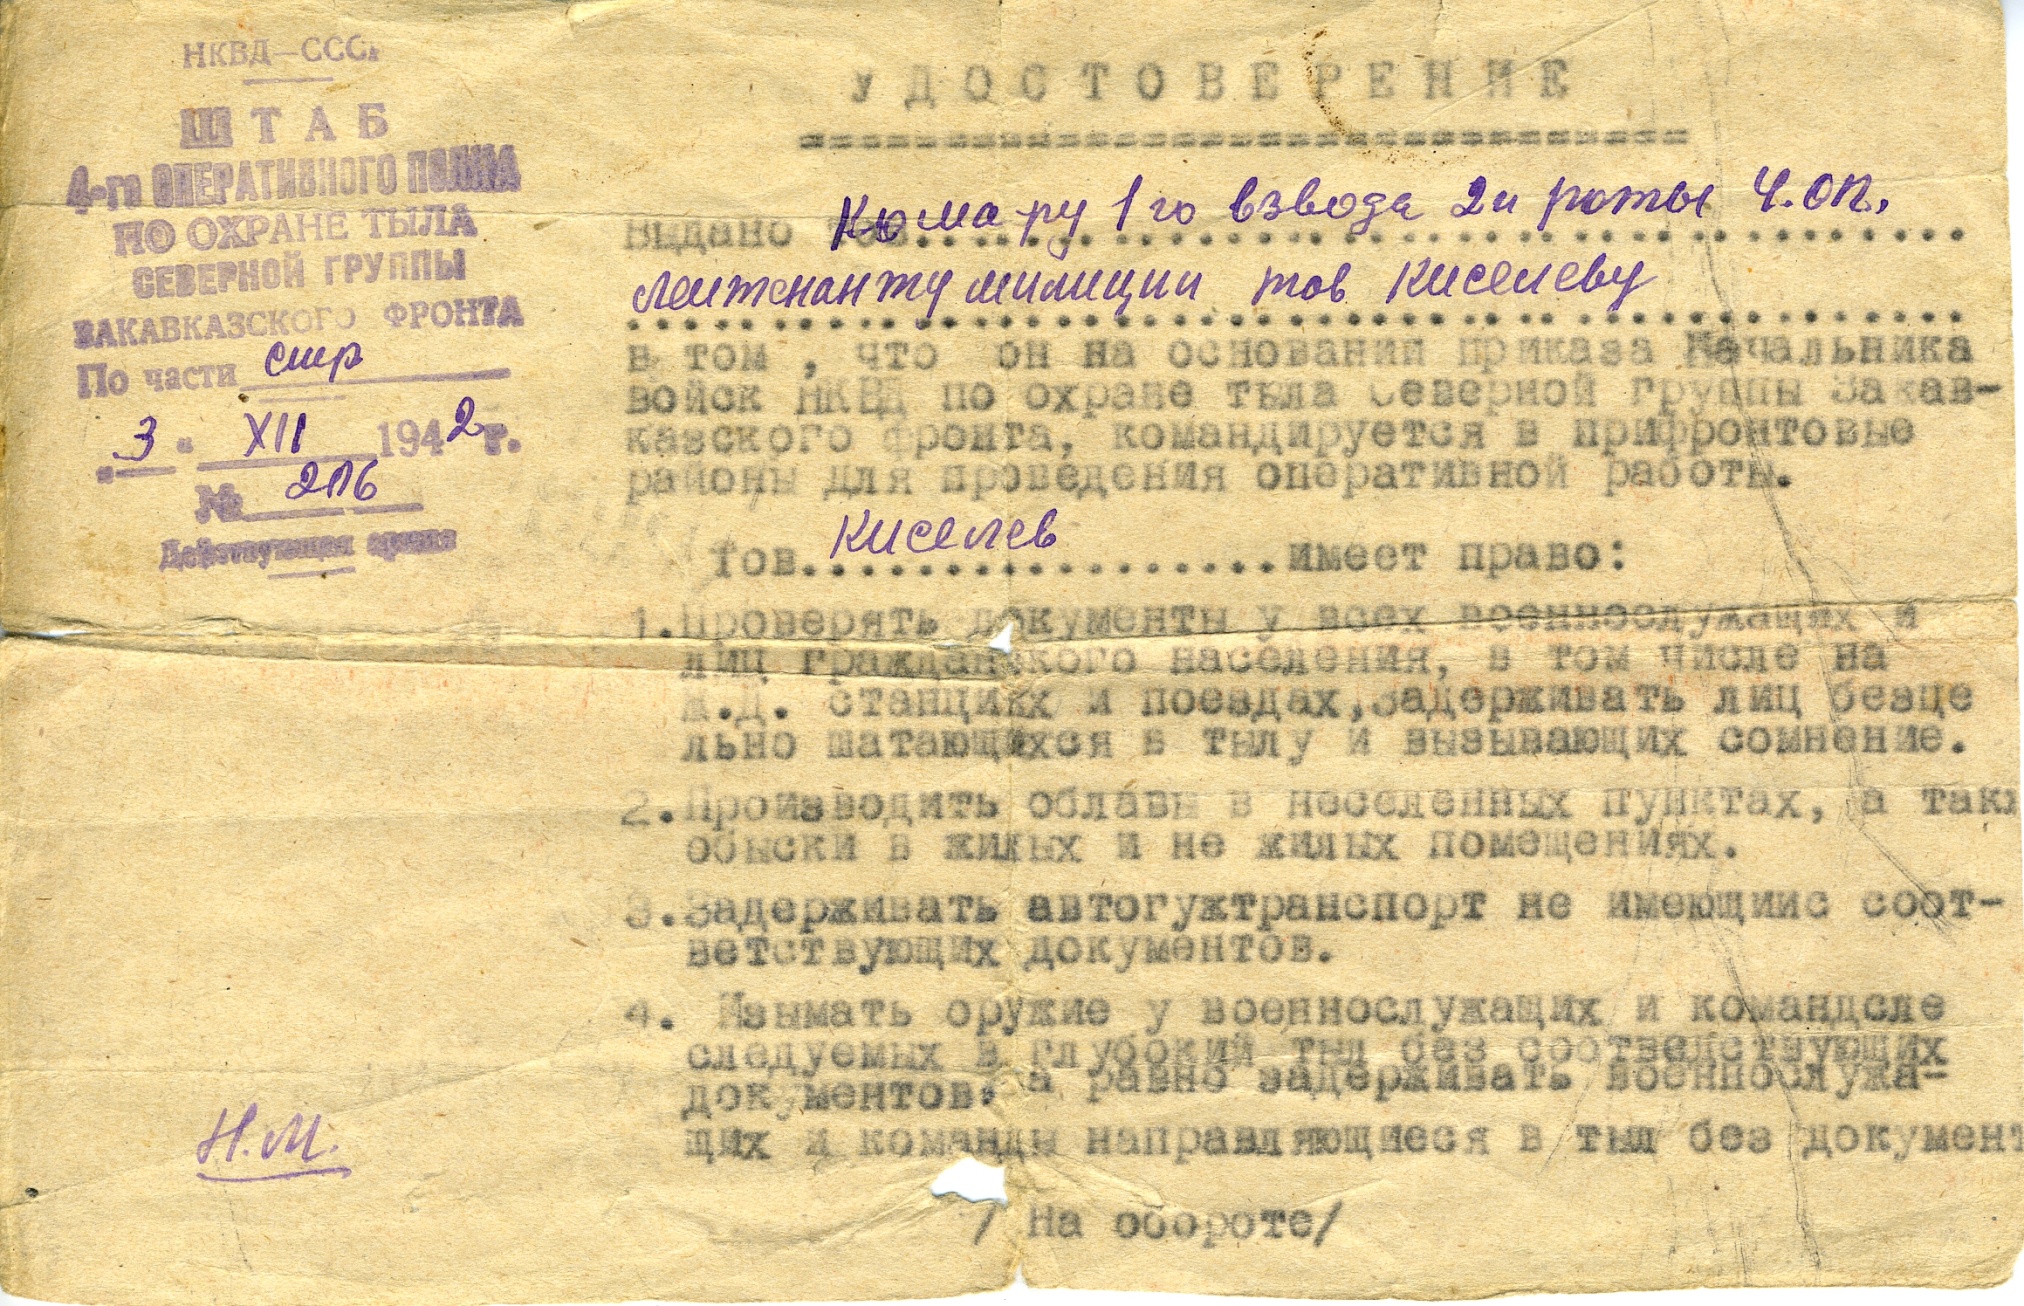 НКВД—СССР
ШТАБ
4-го ОПЕРАТИВНОГО ПОЛКА
ПО ОХРАНЕ ТЫЛА
СЕВЕРНОЙ ГРУППЫ
ЗАКАВКАЗСКОГО ФРОНТА
По части стр
„3" XII 1942 г.
№ 206
Действующая армия
УДОСТОВЕРЕНИЕ
Выдано тов. К-ру 1го взвода 2й роты 4.ОП.
лейтенанту милиции тов Киселеву
в том , что он на основании приказа Начальника
войск НКВД по охране тыла Северной группы Закав-
казского фронта, командируется в прифронтовые
районы для проведения оперативной работы.
Тов. Киселев имеет право:
1. Проверять документы у всех военнослужащих и
лиц гражданского населения, в том числе на
Ж.Д. станциях и поездах, задерживать лиц безце
льно шатающихся в тылу и вызывающих сомнение.
2. Производить облавы в неселенных пунктах, а такж
обыски в жилых и не жилых помещениях.
3. Задерживать автогужтранспорт не имеющиис соот-
ветствующих документов.
4. Изымать оружие у военнослужащих и командсле
следуемых в глубокий тыл без соответствующих
документов, а равно задерживать военнослужа-
щих и команды направляющиеся в тыл без документ
Н.М.
/ На обороте/